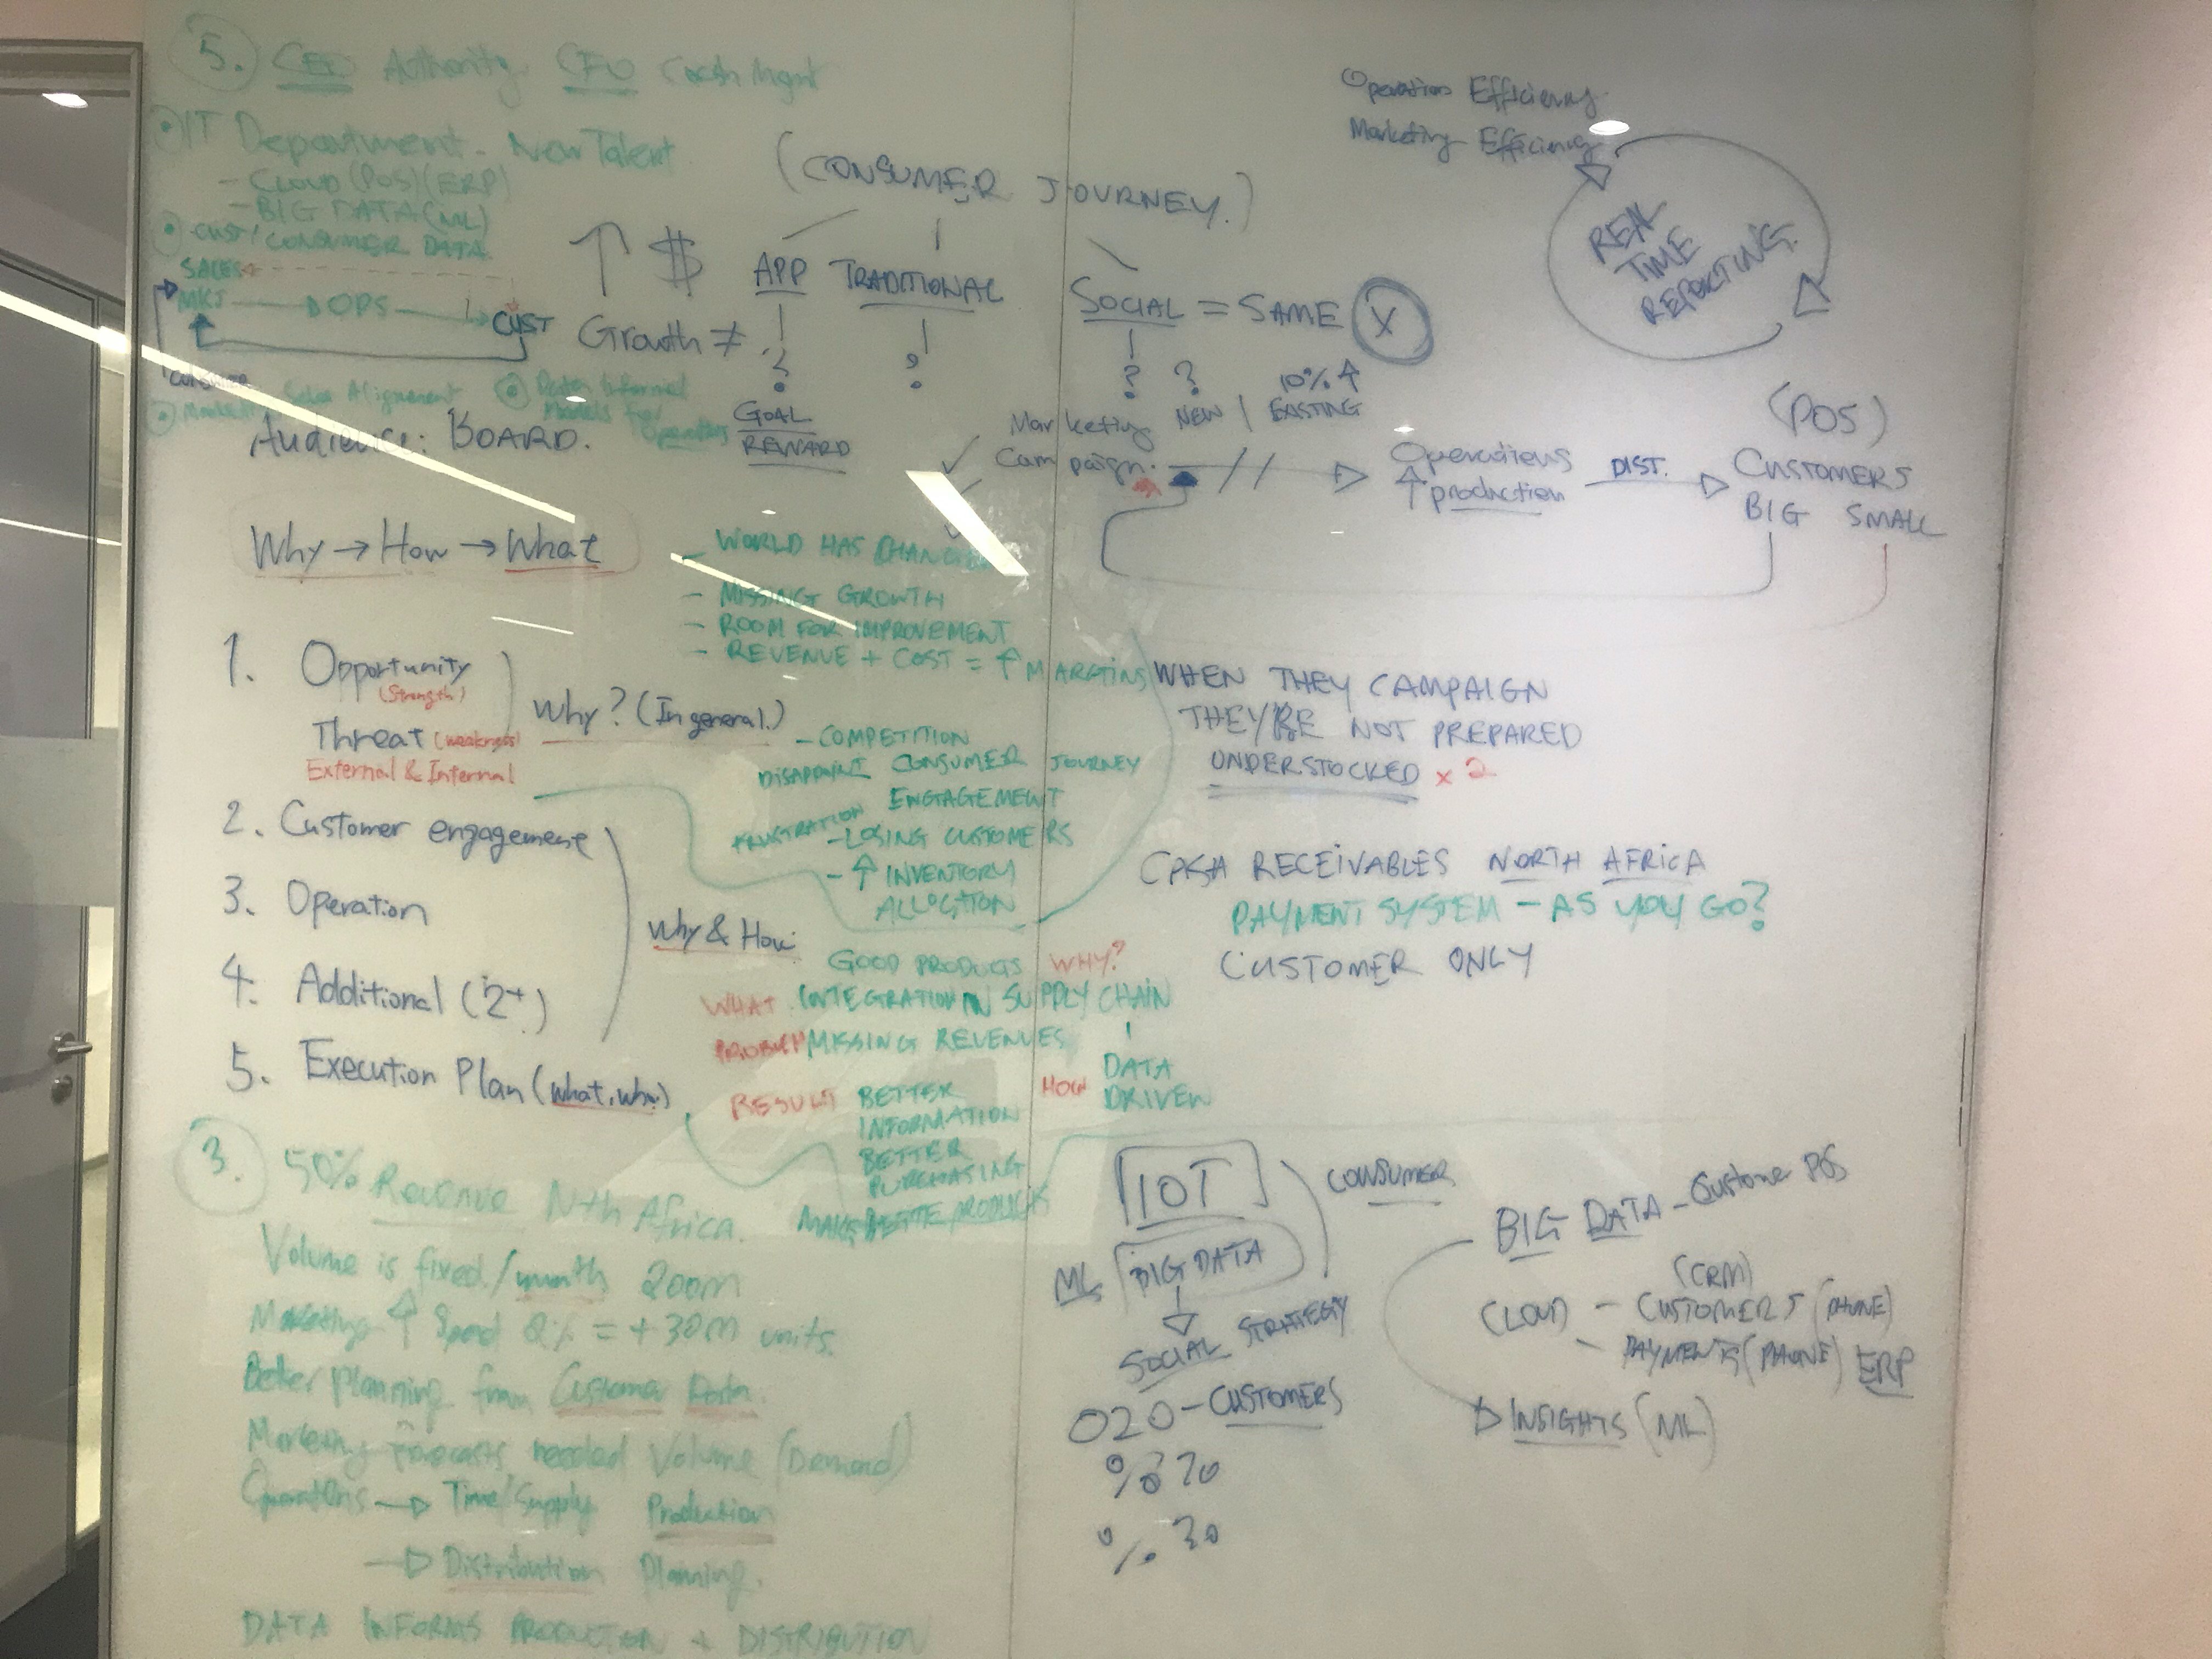 5. CEO Authority CFO Cash Mgmt
IT Department - New Talent
- CLOUD (POS) (ERP)
- BIG DATA (ML)
CUST/
CONSUMER DATA
SALES
MKT OPS CUST
CONSUMER
Sales Alignment
Data Informed
Models for
Operations
(CONSUMER JOURNEY.)
↑ $ APP TRADITIONAL SOCIAL = SAME X
Growth ≠ ? ? ? ?
GOAL
REWARD
Operations Efficiency
Marketing Efficiency
REAL
TIME
REPORTING
Audience: BOARD.
Marketing
Campaign.
NEW | EXISTING
10% ↑
Operations
↑ production
DIST.
(POS)
CUSTOMERS
BIG SMALL
Why → How → What
- WORLD HAS CHANGED
- MISSING GROWTH
- ROOM FOR IMPROVEMENT
- REVENUE + COST = ↑ MARGINS
1. Opportunity
(Strength)
Threat (weakness)
External & Internal
Why? (In general.)
- COMPETITION
DISAPPOINT CONSUMER JOURNEY
ENGAGEMENT
FRUSTRATION
- LOSING CUSTOMERS
- ↑ INVENTORY
ALLOCATION
WHEN THEY CAMPAIGN
THEY'RE NOT PREPARED
UNDERSTOCKED x 2
CASH RECEIVABLES NORTH AFRICA
PAYMENT SYSTEM - AS YOU GO?
CUSTOMER ONLY
2. Customer engagement
3. Operation
4. Additional (2+)
5. Execution Plan (What, why)
Why & How
GOOD PRODUCTS WHY?
WHAT INTEGRATION IN SUPPLY CHAIN
PROBLEM MISSING REVENUES
HOW DATA
DRIVEN
RESULT BETTER
INFORMATION
BETTER
PURCHASING
MAKE BETTER PRODUCTS
3. 50% Revenue Nth Africa.
Volume is fixed / month 200m
Marketing ↑ Spend 2% = + 30m units.
Better planning from Customer Data.
Marketing Forecasts needed Volume (Demand)
Operations → Time/Supply Production
→ Distribution Planning.
DATA INFORMS PRODUCTION + DISTRIBUTION
IOT
CONSUMER
ML BIG DATA
SOCIAL STRATEGY
O2O - CUSTOMERS
% 70
% 30
BIG DATA - Customer POS
(CRM)
CLOUD - CUSTOMERS (PHONE)
- PAYMENTS (PHONE) ERP
INSIGHTS (ML)